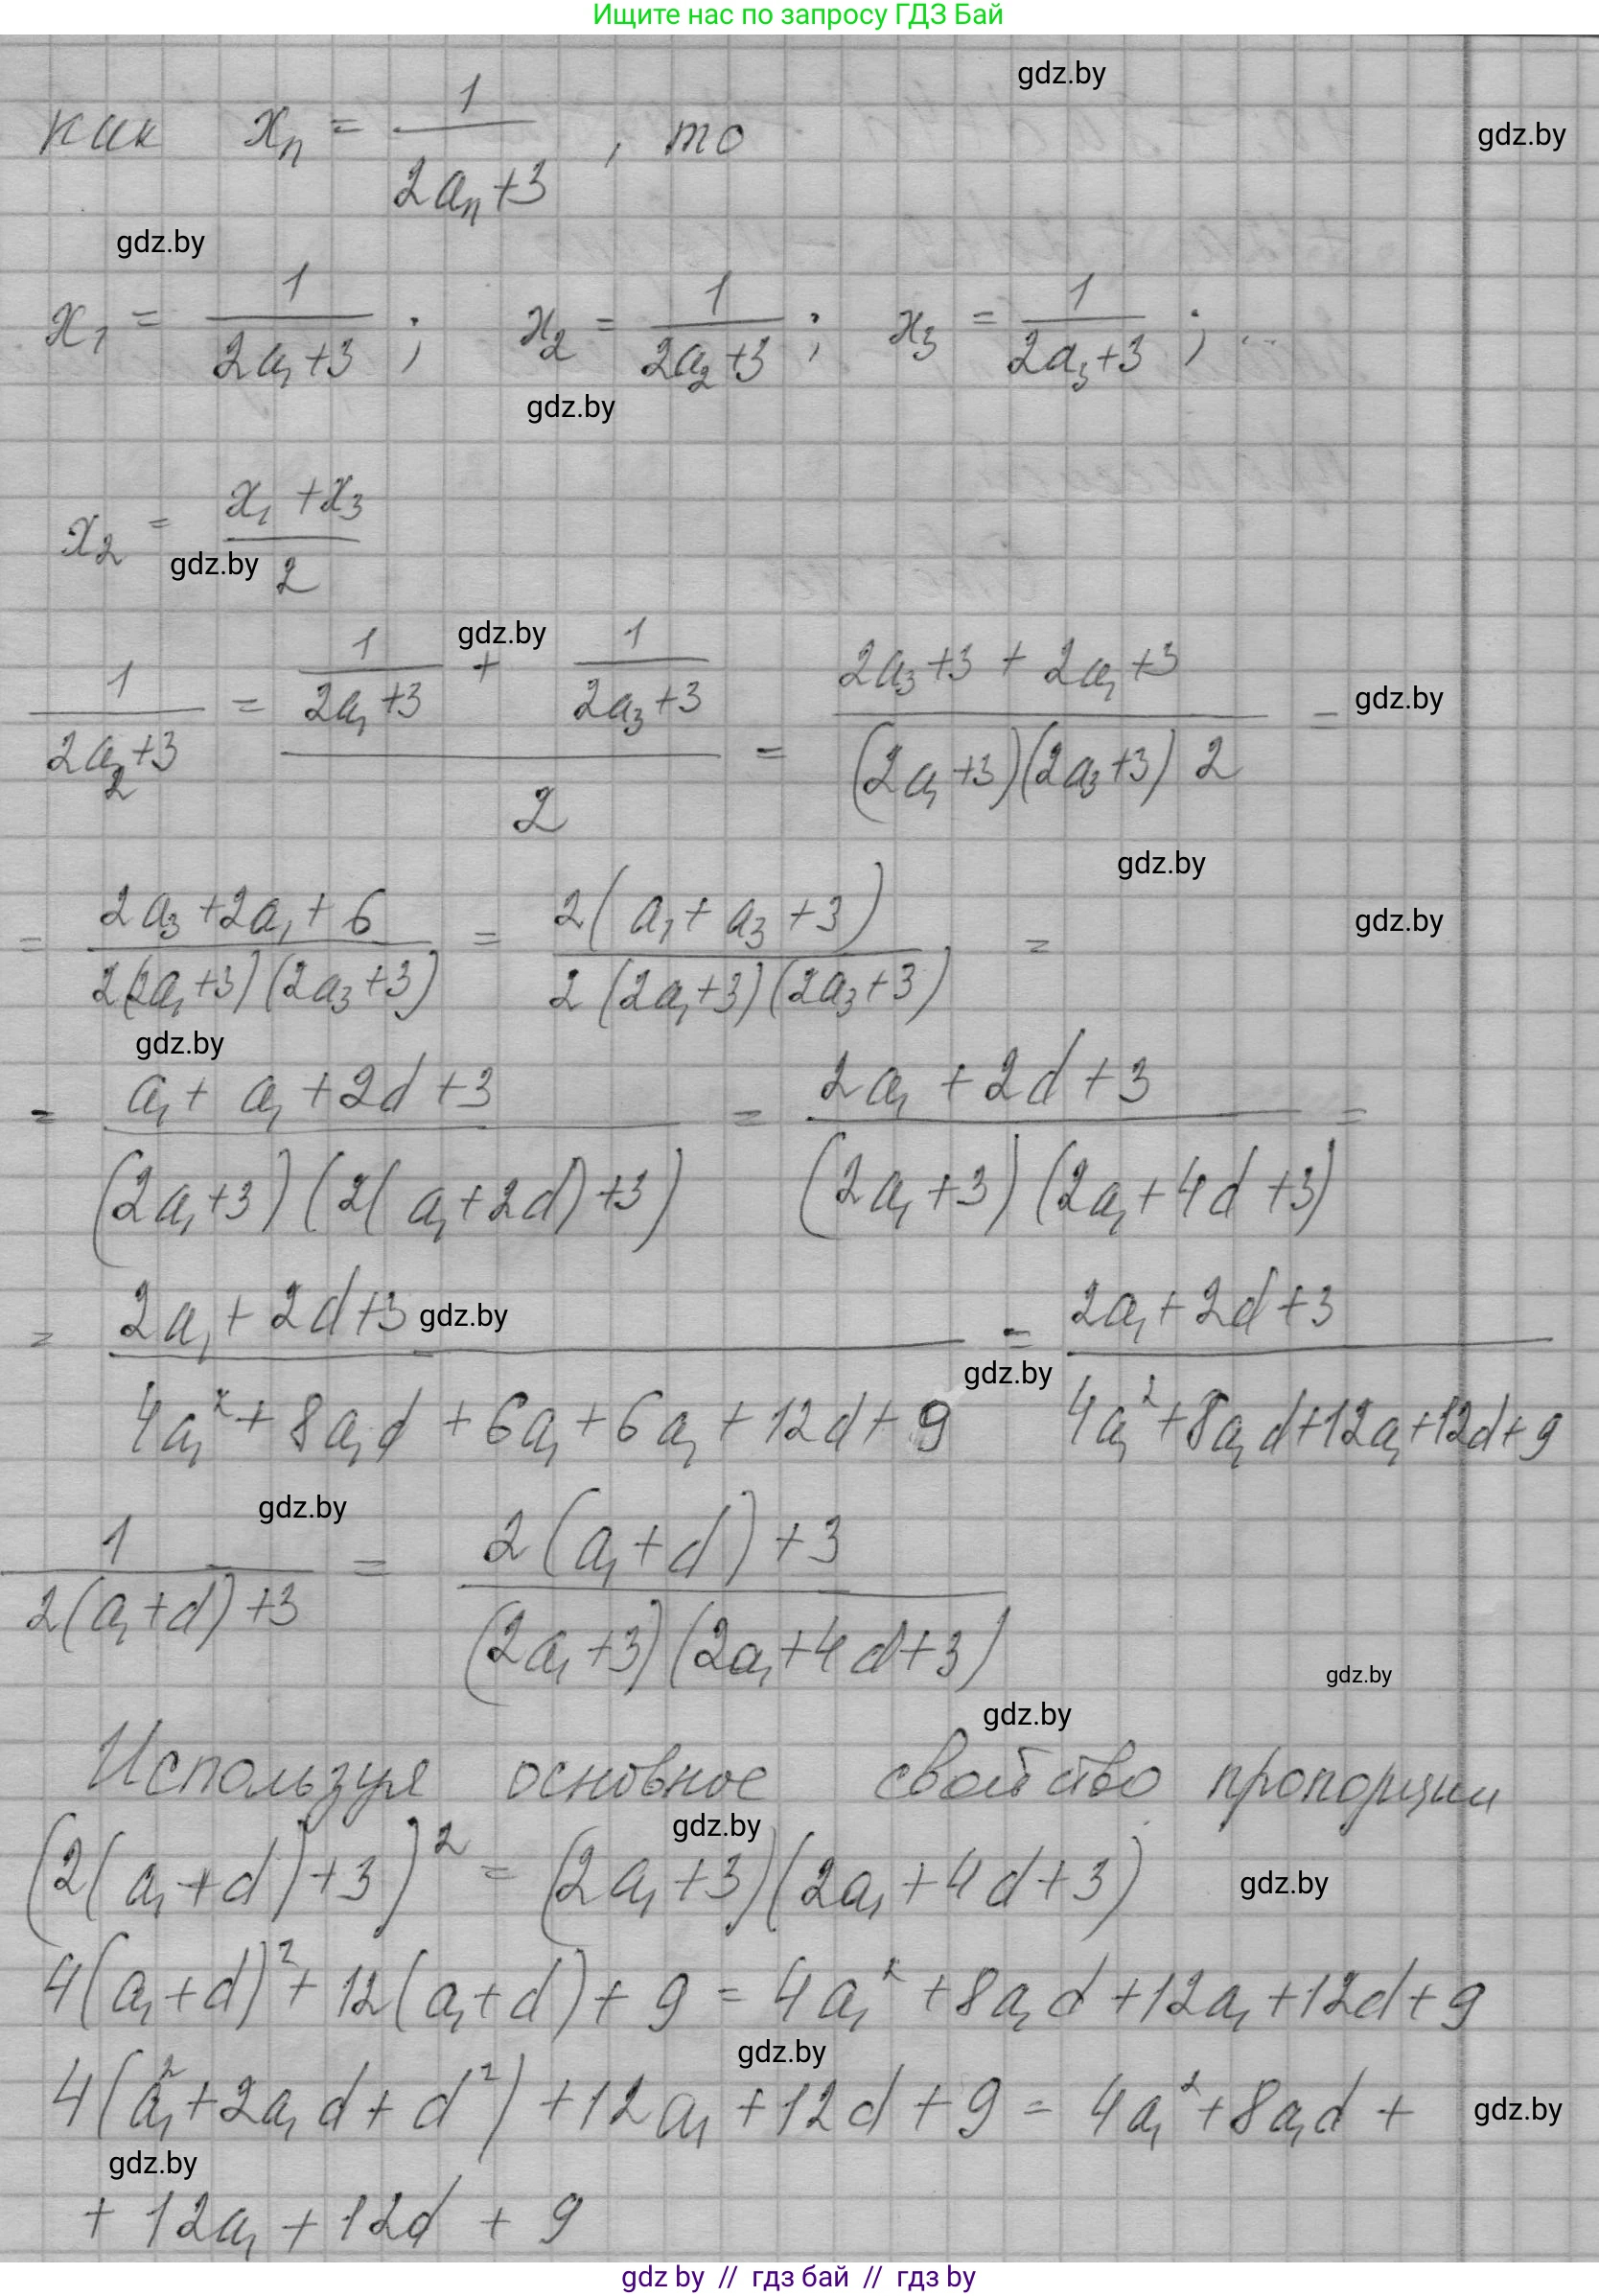 Ищите нас по запросу ГДЗ Бай
gdz.by
как xₙ = 1/(2aₙ+3), то
gdz.by
gdz.by
x₁ = 1/(2a₁+3); x₂ = 1/(2a₂+3); x₃ = 1/(2a₃+3); ...
gdz.by
x₂ = (x₁+x₃)/2
gdz.by
gdz.by
1/(2a₂+3) = (1/(2a₁+3) + 1/(2a₃+3))/2 = (2a₃+3+2a₁+3)/((2a₁+3)(2a₃+3)2) =
gdz.by
gdz.by
= (2a₃+2a₁+6)/(2(2a₁+3)(2a₃+3)) = 2(a₁+a₃+3)/(2(2a₁+3)(2a₃+3)) =
gdz.by
gdz.by
= (a₁+a₁+2d+3)/((2a₁+3)(2(a₁+2d)+3)) = (2a₁+2d+3)/((2a₁+3)(2a₁+4d+3)) =
= (2a₁+2d+3)/(4a₁²+8a₁d+6a₁+6a₁+12d+9) = (2a₁+2d+3)/(4a₁²+8a₁d+12a₁+12d+9)
gdz.by
gdz.by
gdz.by
1/(2(a₁+d)+3) = (2(a₁+d)+3)/((2a₁+3)(2a₁+4d+3))
gdz.by
gdz.by
Используя основное свойство пропорции
gdz.by
(2(a₁+d)+3)² = (2a₁+3)(2a₁+4d+3)
gdz.by
4(a₁+d)²+12(a₁+d)+9 = 4a₁²+8a₁d+12a₁+12d+9
gdz.by
4(a₁²+2a₁d+d²)+12a₁+12d+9 = 4a₁²+8a₁d+
gdz.by
gdz.by
+12a₁+12d+9
gdz by // гдз бай // гдз by